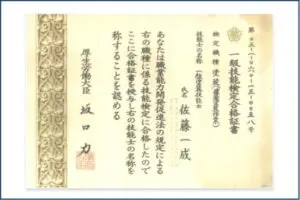 一級技能検定合格証書
検定職種 塗装
技能士の名称 一級塗装技能士
氏名 佐藤一成
あなたは職業能力開発促進法の規定による
右の職種に係る技能検定に合格したので
ここに合格証書を授与し右の技能士の名称を
称することを認める
厚生労働大臣 坂口力